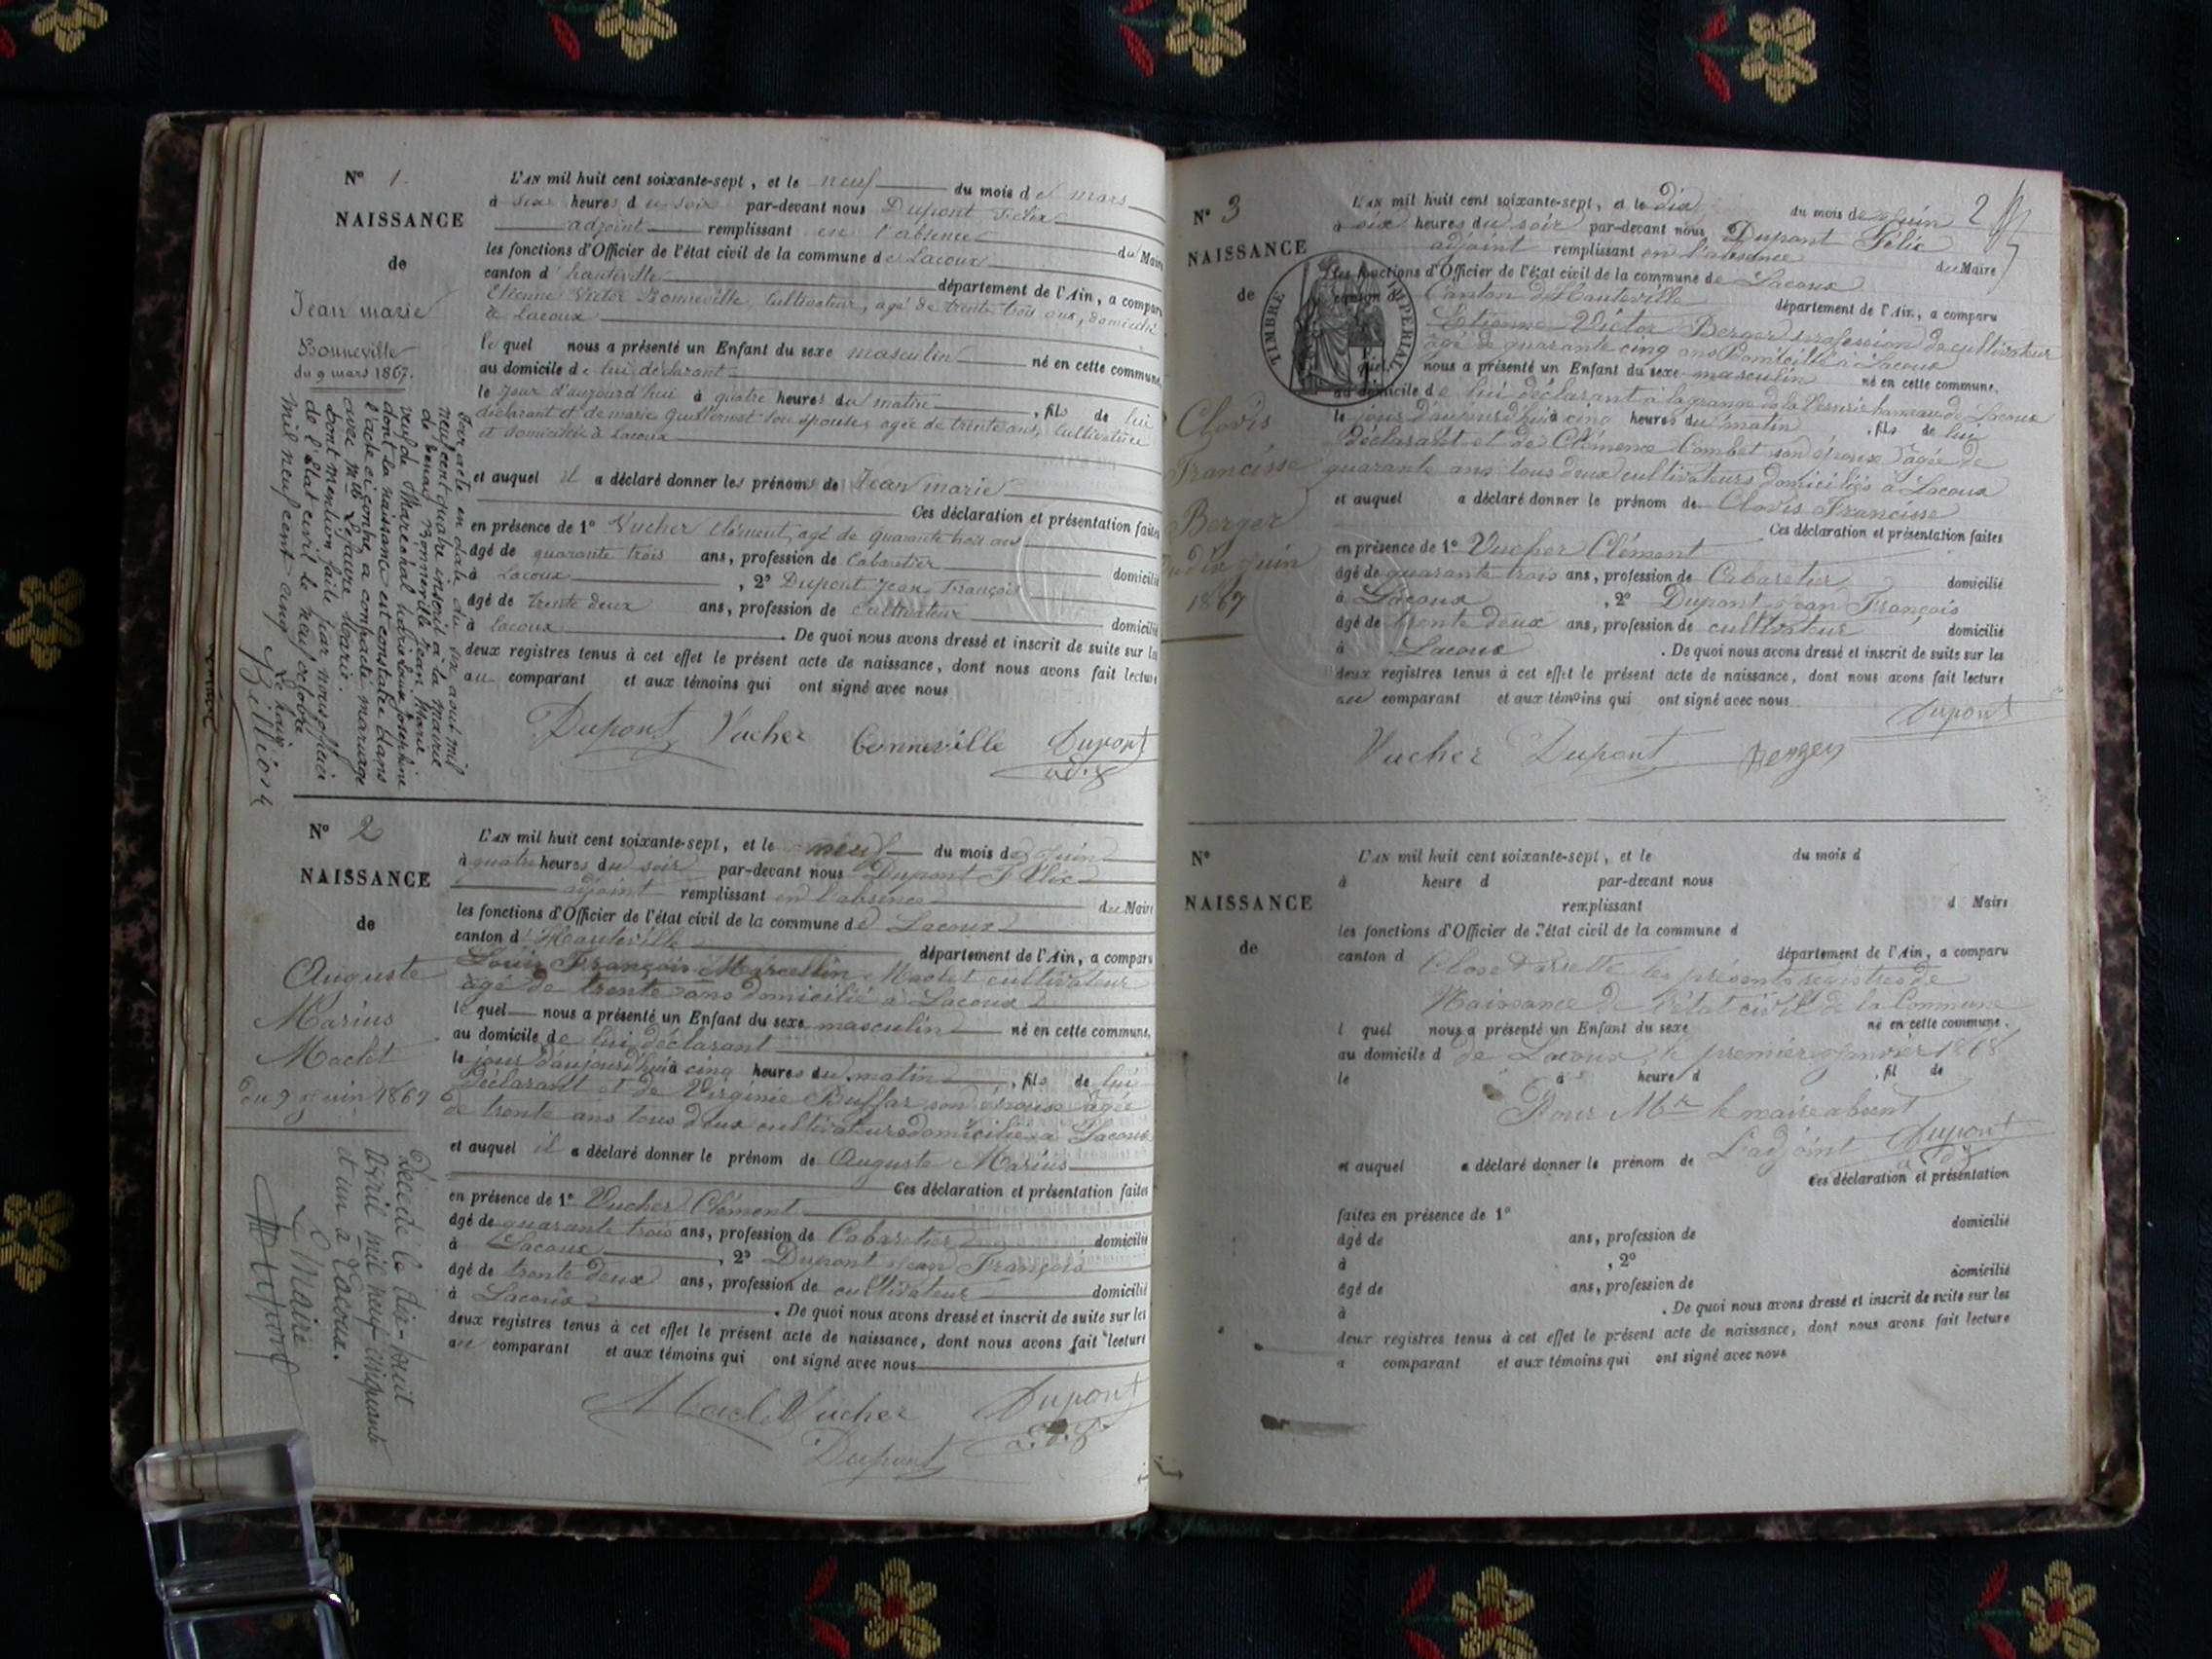 N° 1.
NAISSANCE
de
Jean marie
Bonneville
du 9 mars 1867.
L'AN mil huit cent soixante-sept, et le neuf du mois de mars
à six heures du soir par-devant nous Dupont Félix
adjoint remplissant en l'absence du Maire
les fonctions d'Officier de l'état civil de la commune de Lacoux
canton d'hauteville département de l'Ain, a comparu
Etienne Victor Bonneville, Cultivateur, agé de trente trois ans, domicilié
à Lacoux
lequel nous a présenté un Enfant du sexe masculin né en cette commune,
au domicile de lui déclarant
le jour d'aujourd'hui à quatre heures du matin, fils de lui
déclarant et de marie son épouse, agée de trente ans, Cultivatrice
et domiciliée à Lacoux
et auquel il a déclaré donner les prénoms de Jean marie
Ces déclaration et présentation faites
en présence de 1° Vucher Clément, agé de quarante trois ans
âgé de quarante trois ans, profession de Cabaretier domicilié
à Lacoux, 2° Dupont Jean François
âgé de trente deux ans, profession de Cultivateur domicilié
à Lacoux. De quoi nous avons dressé et inscrit de suite sur les
deux registres tenus à cet effet le présent acte de naissance, dont nous avons fait lecture
au comparant et aux témoins qui ont signé avec nous
Dupont Vucher bonneville Dupont
adj.
Par acte en date du six aout mil
neuf cent quatre inscrit à la mairie
de Bonneville Jean Marie
veuf de Maréchal Josephine
dont la naissance est constatée dans
l'acte ci contre, a contracté mariage
avec Mlle Lefavre Marie.
Dont mention faite par nous officier
de l'Etat civil le neuf octobre
mil neuf cent cinq
Le Maire
Billion
N° 2
NAISSANCE
de
Auguste
Marius
Maclet
du 9 juin 1867
L'AN mil huit cent soixante-sept, et le neuf du mois de juin
à quatre heures du soir par-devant nous Dupont Félix
adjoint remplissant en l'absence du Maire
les fonctions d'Officier de l'état civil de la commune de Lacoux
canton d'Hauteville département de l'Ain, a comparu
Louis François Marcellin Maclet cultivateur
agé de trente ans domicilié à Lacoux
lequel nous a présenté un Enfant du sexe masculin né en cette commune,
au domicile de lui déclarant
le jour d'aujourd'hui à cinq heures du matin, fils de lui
déclarant et de Virginie Buffar son épouse agée
de trente ans tous deux cultivateurs domiciliés à Lacoux
et auquel il a déclaré donner le prénom de Auguste Marius
Ces déclaration et présentation faites
en présence de 1° Vucher Clément
âgé de quarante trois ans, profession de Cabaretier domicilié
à Lacoux, 2° Dupont Jean François
âgé de trente deux ans, profession de cultivateur domicilié
à Lacoux. De quoi nous avons dressé et inscrit de suite sur les
deux registres tenus à cet effet le présent acte de naissance, dont nous avons fait lecture
au comparant et aux témoins qui ont signé avec nous
Maclet Vucher Dupont
Dupont
Décédé le dix-huit
Avril mil neuf cinquante
et un à Lacoux.
Le Maire
N° 3
NAISSANCE
de
Clovis
Francisse
Berger
du dix juin
1867
2
L'AN mil huit cent soixante-sept, et le dix du mois de juin
à six heures du soir par-devant nous Dupont Félix
adjoint remplissant en l'absence du Maire
les fonctions d'Officier de l'état civil de la commune de Lacoux
canton de Canton d'Hauteville département de l'Ain, a comparu
TIMBRE IMPERIAL
Etienne Victor Berger profession de cultivateur
agé de quarante cinq ans Domicilié à Lacoux
quel nous a présenté un Enfant du sexe masculin né en cette commune,
au domicile de lui déclarant à la grange de la hameau de Lacoux
le jour d'aujourd'hui à cinq heures du matin, fils de lui
déclarant et de Clémence Combet son épouse agée de
quarante ans tous deux cultivateurs domiciliés à Lacoux
et auquel a déclaré donner le prénom de Clovis Francisse
Ces déclaration et présentation faites
en présence de 1° Vucher Clément
âgé de quarante trois ans, profession de Cabaretier domicilié
à Lacoux, 2° Dupont Jean François
âgé de trente deux ans, profession de cultivateur domicilié
à Lacoux. De quoi nous avons dressé et inscrit de suite sur les
deux registres tenus à cet effet le présent acte de naissance, dont nous avons fait lecture
au comparant et aux témoins qui ont signé avec nous
Dupont
Vucher Dupont Berger
N°
NAISSANCE
de
L'AN mil huit cent soixante-sept, et le du mois d
à heure d par-devant nous
remplissant d Maire
les fonctions d'Officier de l'état civil de la commune d
canton d département de l'Ain, a comparu
Clos et arrêté les présents registres de
Naissance de l'état civil de la Commune
l quel nous a présenté un Enfant du sexe né en cette commune,
au domicile d de Lacoux, le premier janvier 1868
le à heure d, fil de
Pour Mr le maire absent
L'adjoint Dupont
adj
et auquel a déclaré donner le prénom de
Ces déclaration et présentation
faites en présence de 1°
âgé de ans, profession de domicilié
à , 2°
âgé de ans, profession de domicilié
à . De quoi nous avons dressé et inscrit de suite sur les
deux registres tenus à cet effet le présent acte de naissance, dont nous avons fait lecture
a comparant et aux témoins qui ont signé avec nous